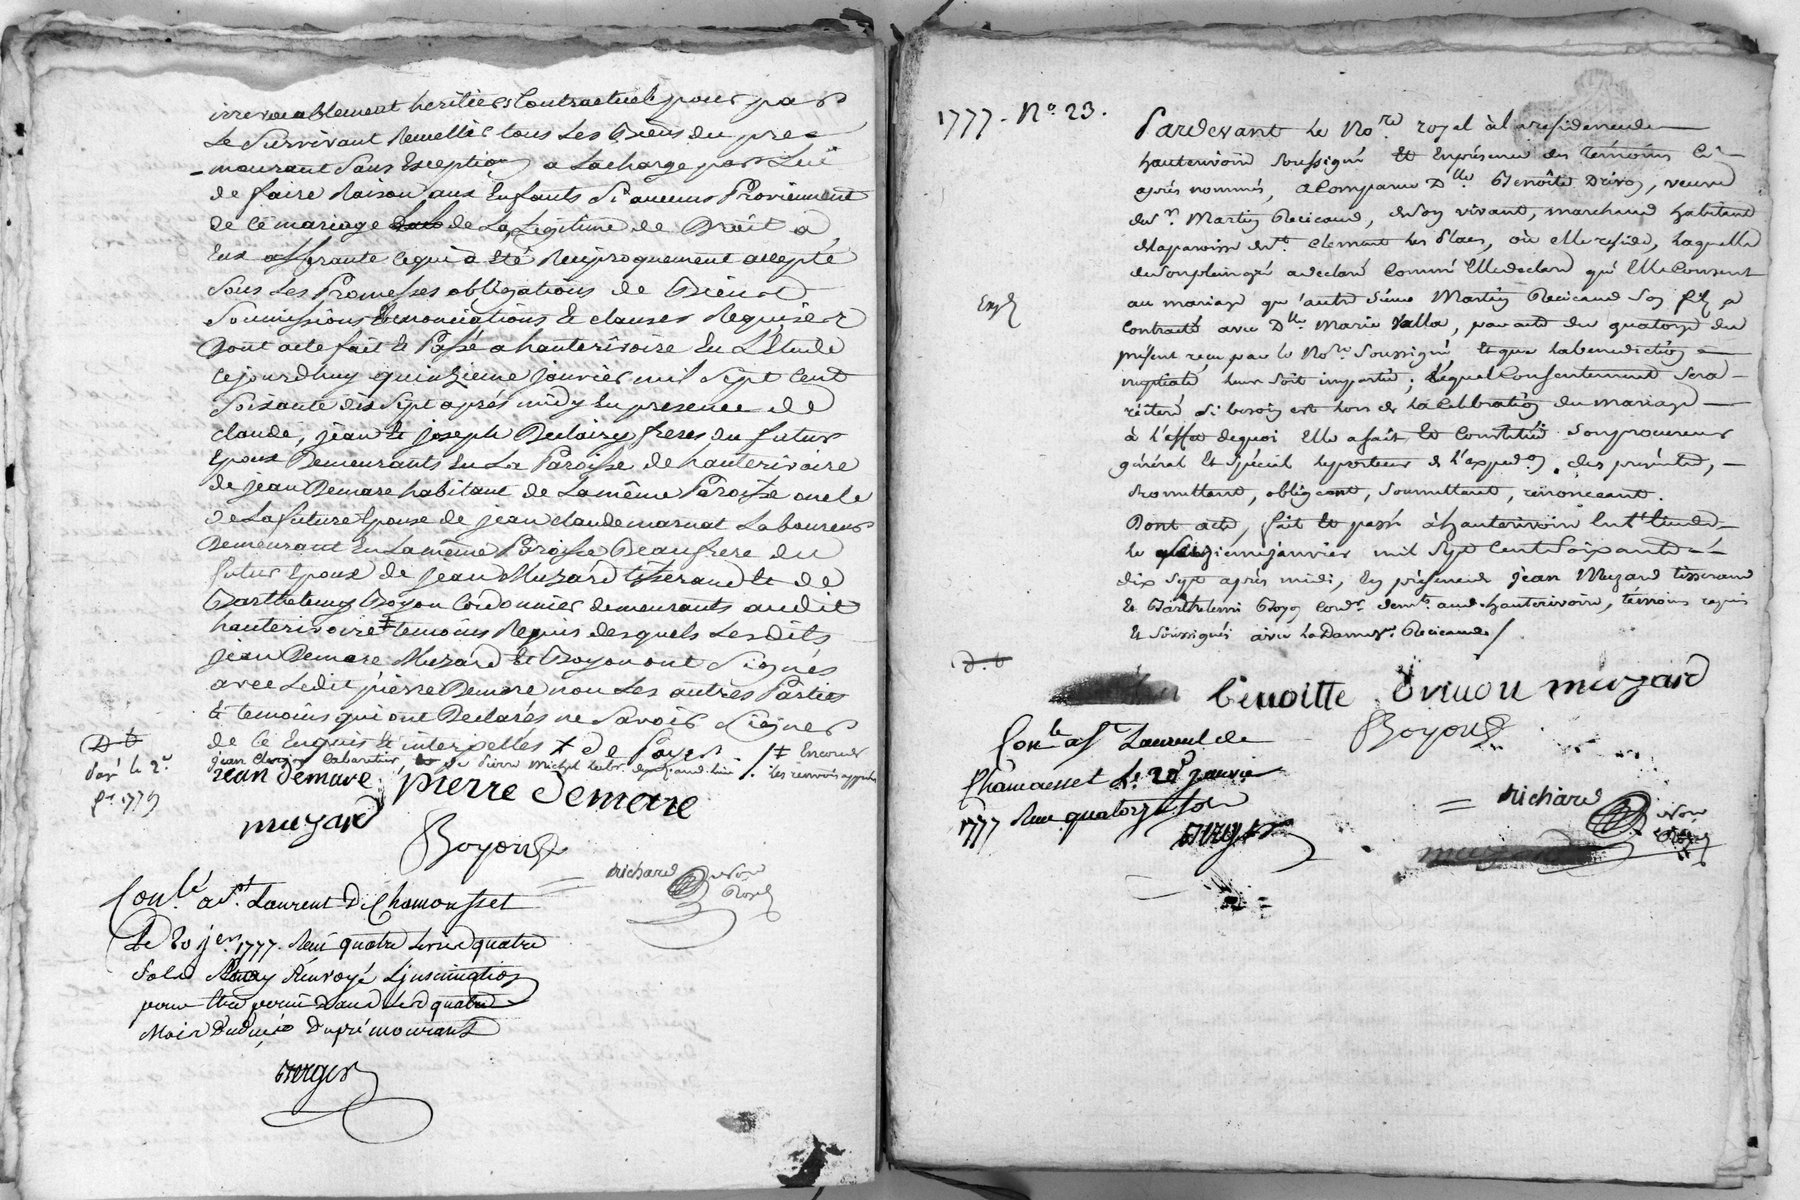 irrevocablement heritiers Contractuels pour par
Le Survivant Receuillir tous Les Biens du pré-
-mourant Sans Exception a La charge par Lui
de faire Raison aux Enfants Si aucuns Proviennent
de Ce mariage de La Légitime de Droit à
Eux afferante Ce qui à été Réciproquement accepté
Sous Les Promesses obligations de Biens
Soumissions Renonciations & clauses Requises
Dont acte fait & Passé a hauterivoire En L'Etude
Cejourdhuy quinzieme janvier mil Sept Cent
Soixante dix Sept aprés midy En presence de
claude, jean & joseph Declairy freres du futur
Epoux Demeurants En La Paroisse de hauterivoire
de jean Demare habitant de La même Paroisse oncle
de La future Epouse de jean claude marnat Laboureur
Demeurant En La même Paroisse Beaufrere du
futur Epoux de jean Muzard tisserand & de
Barthelemy Boyon Cordonnier demeurants audit
hauterivoire ‡ temoins Requis desquels Lesdits
jean Demare Muzard & Boyon ont Signés
avec Ledit pierre Demare non Les autres Parties
& temoins qui ont Declarés ne Savoir Signer
de Ce Enquis & interpellés ‡ de
jean Cabaretier, de Pierre Michel
‡ Les renvois
D. t.
Payé le 2e
1779
jean demare pierre demare
muzard
Boyon
richard Nore Royal
Conlé a St. Laurent D. Chamousset
Le 20 jer. 1777. Reçu quatre Livres quatre
Sols Renvoyé à L'insinuation
pour être permis dans Les quatre
Mois du decés du prémourant
Berger
1777. No. 23.
Expé
Pardevant Le Nore. royal à la résidence de
hauterivoire soussigné Et En présence des Témoins Ci-
après nommés, a Comparu Dlle Benoîte Drivon, veuve
du Sr. Martin Recicaud, de Son vivant, marchand habitant
de la paroisse de St. Clement Les Places, où elle reside, Laquelle
de Son plein gré a declaré Comme Elle declare qu'Elle Consent
au mariage qu'autre Sieur Martin Recicaud Son fils a
Contracté avec Dlle Marie Valla, par acte du quatorze du
présent reçu par le Nore. Soussigné, Et que la bénédiction
nuptiale leur Soit impartie; Lequel Consentement Sera
réitéré Si besoin est Lors de la Célébration du mariage
à l'effet de quoi Elle a fait Et Constitué Son procureur
général Et Spécial le porteur de l'expedon. des présentes,
Promettant, obligeant, Soumettant, renonçant.
Dont acte, fait Et passé à hauterivoire En l'Etude
le janvier mil Sept Cent Soixante
dix Sept après midi, En présence de jean Muzard tisserand
& Barthelemi Boyon Cordr. demts. aud. hauterivoire, témoins requis
Et Soussignés avec la Dame ve. Recicaud /
D. t.
Benoitte drivon muzard
Boyon
Conlé a St Laurent de
Chamousset Le 20 janvier
1777 Reçu quatorze Sols
Berger
richard Nore Royal
muzard